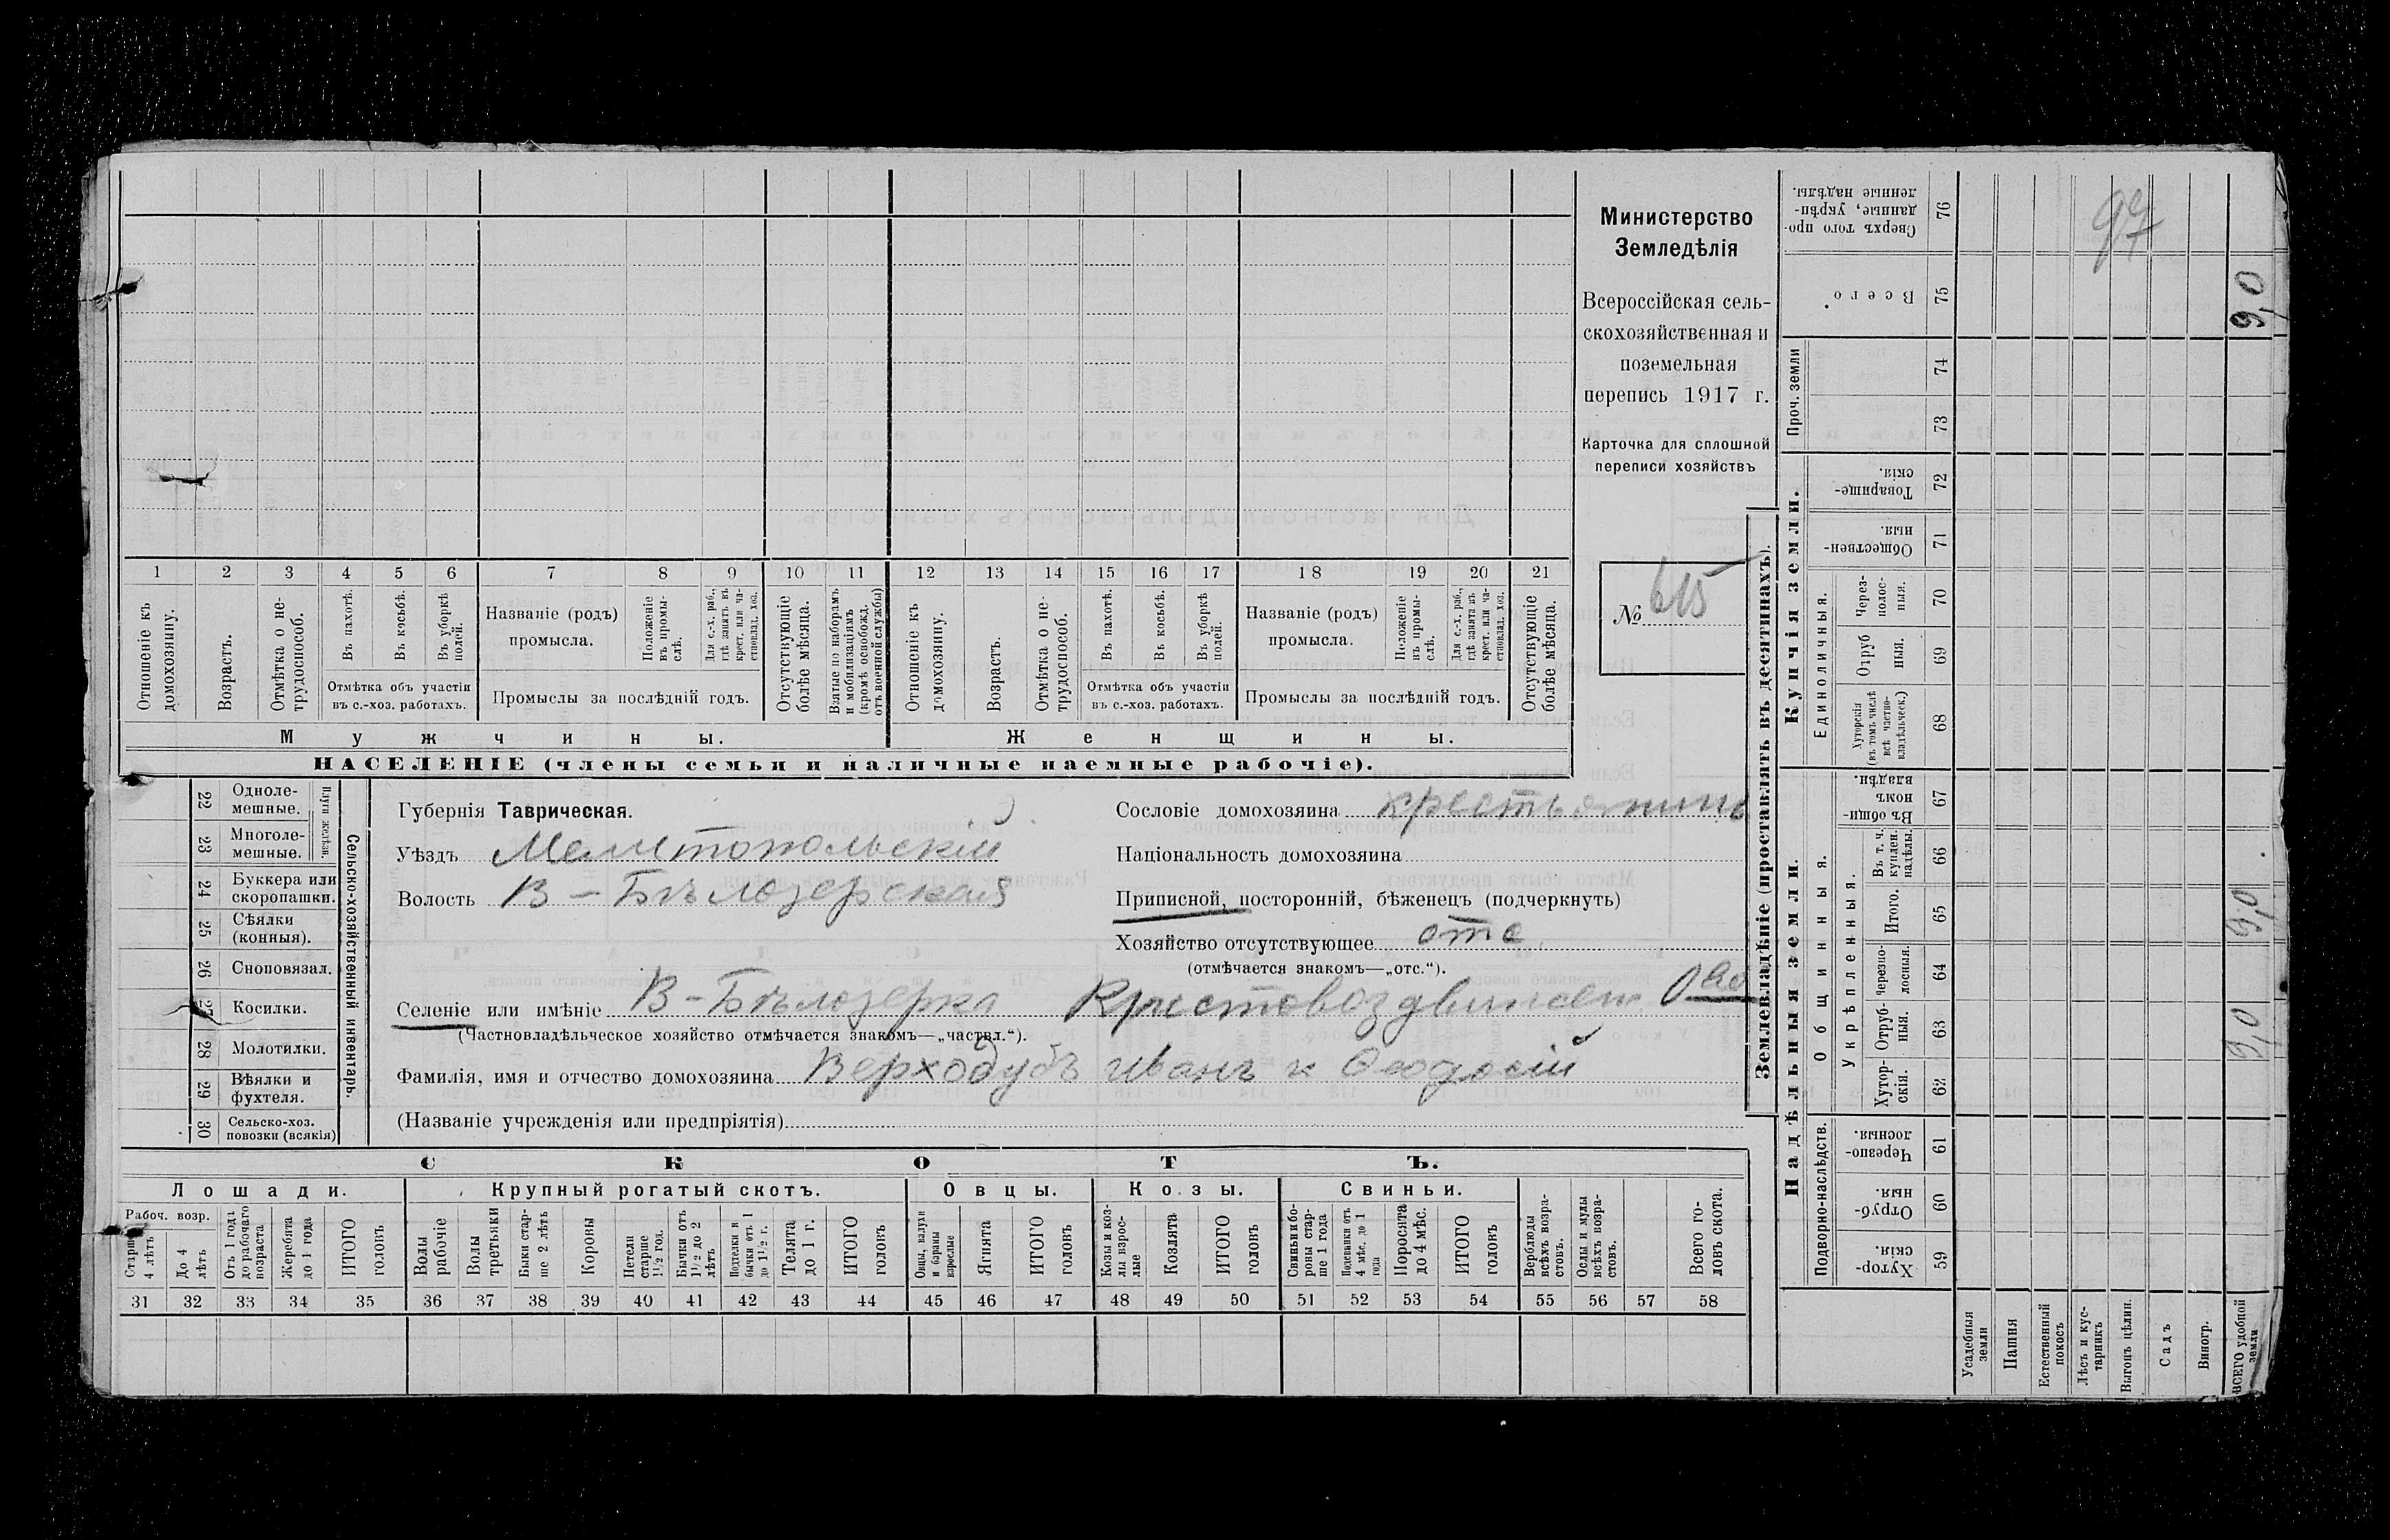 Министерство
Земледѣлія
Всероссійская сель-
скохозяйственная и
поземельная
перепись 1917 г.
Карточка для сплошной
переписи хозяйствъ
№ 615
1 2 3 4 5 6 7 8 9 10 11 12 13 14 15 16 17 18 19 20 21
Отношеніе къ домохозяину.
Возрастъ.
Отмѣтка о не-трудоспособ.
Въ пахотѣ.
Въ косьбѣ.
Въ уборкѣ полей.
Отмѣтка объ участіи
въ с.-хоз. работахъ.
Названіе (родъ)
промысла.
Положеніе въ промы-слѣ.
Для с.-х. раб., гдѣ занятъ въ крест. или ча-стновлад. хоз.
Промыслы за послѣдній годъ.
Отсутствующіе болѣе мѣсяца.
Взятые по наборамъ и мобилизаціямъ (кромѣ освобожд. отъ военной службы)
Отношеніе къ домохозяину.
Возрастъ.
Отмѣтка о не-трудоспособ.
Въ пахотѣ.
Въ косьбѣ.
Въ уборкѣ полей.
Отмѣтка объ участіи
въ с.-хоз. работахъ.
Названіе (родъ)
промысла.
Положеніе въ промы-слѣ.
Для с.-х. раб., гдѣ занятъ въ крест. или ча-стновлад. хоз.
Промыслы за послѣдній годъ.
Отсутствующіе болѣе мѣсяца.
Мужчины.
Женщины.
НАСЕЛЕНІЕ (члены семьи и наличные наемные рабочіе).
22 Одноле-мешные.
23 Многоле-мешные.
Плуги желѣзн.
24 Буккера или скоропашки.
25 Сѣялки (конныя).
26 Сноповязал.
27 Косилки.
28 Молотилки.
29 Вѣялки и фухтеля.
30 Сельско-хоз. повозки (всякія)
Сельско-хозяйственный инвентарь.
Губернія Таврическая.
Уѣздъ Мелитопольскій
Волость В-Бѣлозерская
Сословіе домохозяина крестьянинъ
Національность домохозяина
Приписной, посторонній, бѣженецъ (подчеркнуть)
Хозяйство отсутствующее отс
(отмѣчается знакомъ—„отс.“).
Селеніе или имѣніе В-Бѣлозерка
(Частновладѣльческое хозяйство отмѣчается знакомъ—„частвл.“).
Фамилія, имя и отчество домохозяина Верходубъ Иванъ и Ѳеодосій
(Названіе учрежденія или предпріятія)
СКОТЪ.
Лошади. Крупный рогатый скотъ. Овцы. Козы. Свиньи.
Рабоч. возр.
Старше 4 лѣтъ
До 4 лѣтъ
Отъ 1 года до рабочаго возраста
Жеребята до 1 года
ИТОГО головъ
Волы рабочіе
Волы третьяки
Быки стар-ше 2 лѣтъ
Коровы
Нетели старше 1½ год.
Бычки отъ 1½ до 2 лѣтъ
Подтелки и бычки отъ 1 до 1½ г.
Телята до 1 г.
ИТОГО головъ
Овцы, валухи и бараны взрослые
Ягнята
ИТОГО головъ
Козы и коз-лы взрос-лые
Козлята
ИТОГО головъ
Свиньи и бо-ровы стар-ше 1 года
Подсвинки отъ 4 мѣс. до 1 года
Поросята до 4 мѣс.
ИТОГО головъ
Верблюды всѣхъ возра-стовъ.
Ослы и мулы всѣхъ возра-стовъ.
Всего го-ловъ скота.
31 32 33 34 35 36 37 38 39 40 41 42 43 44 45 46 47 48 49 50 51 52 53 54 55 56 57 58
Землевладѣніе (проставлять въ десятинахъ).
Надѣльныя земли.
Купчія земли.
Проч. земли
Подворно-наслѣдств.
Общинныя.
Укрѣпленныя.
Единоличныя.
59 Хутор-скія.
60 Отруб-ныя.
61 Черезпо-лосныя.
62 Хутор-скія.
63 Отруб-ныя. 9,0
64 Черезпо-лосныя.
65 Итого. 9,0
66 Въ т. ч. куплен. надѣлы.
67 Въ общи-номъ владѣн.
68 Хуторскія (въ томъ числѣ всѣ частно-владѣльческ.)
69 Отруб ныя.
70 Через-полос-ныя.
71 Обществен-ныя.
72 Товарище-скія.
73
74
75 Всего. 9,0
76 Сверхъ того про-данные, укрѣп-ленные надѣлы.
Усадебныя земли
Пашня
Естественный покосъ
Лѣсъ и кус-тарникъ
Выгонъ цѣлин.
Садъ
Виногр.
ВСЕГО удобной земли